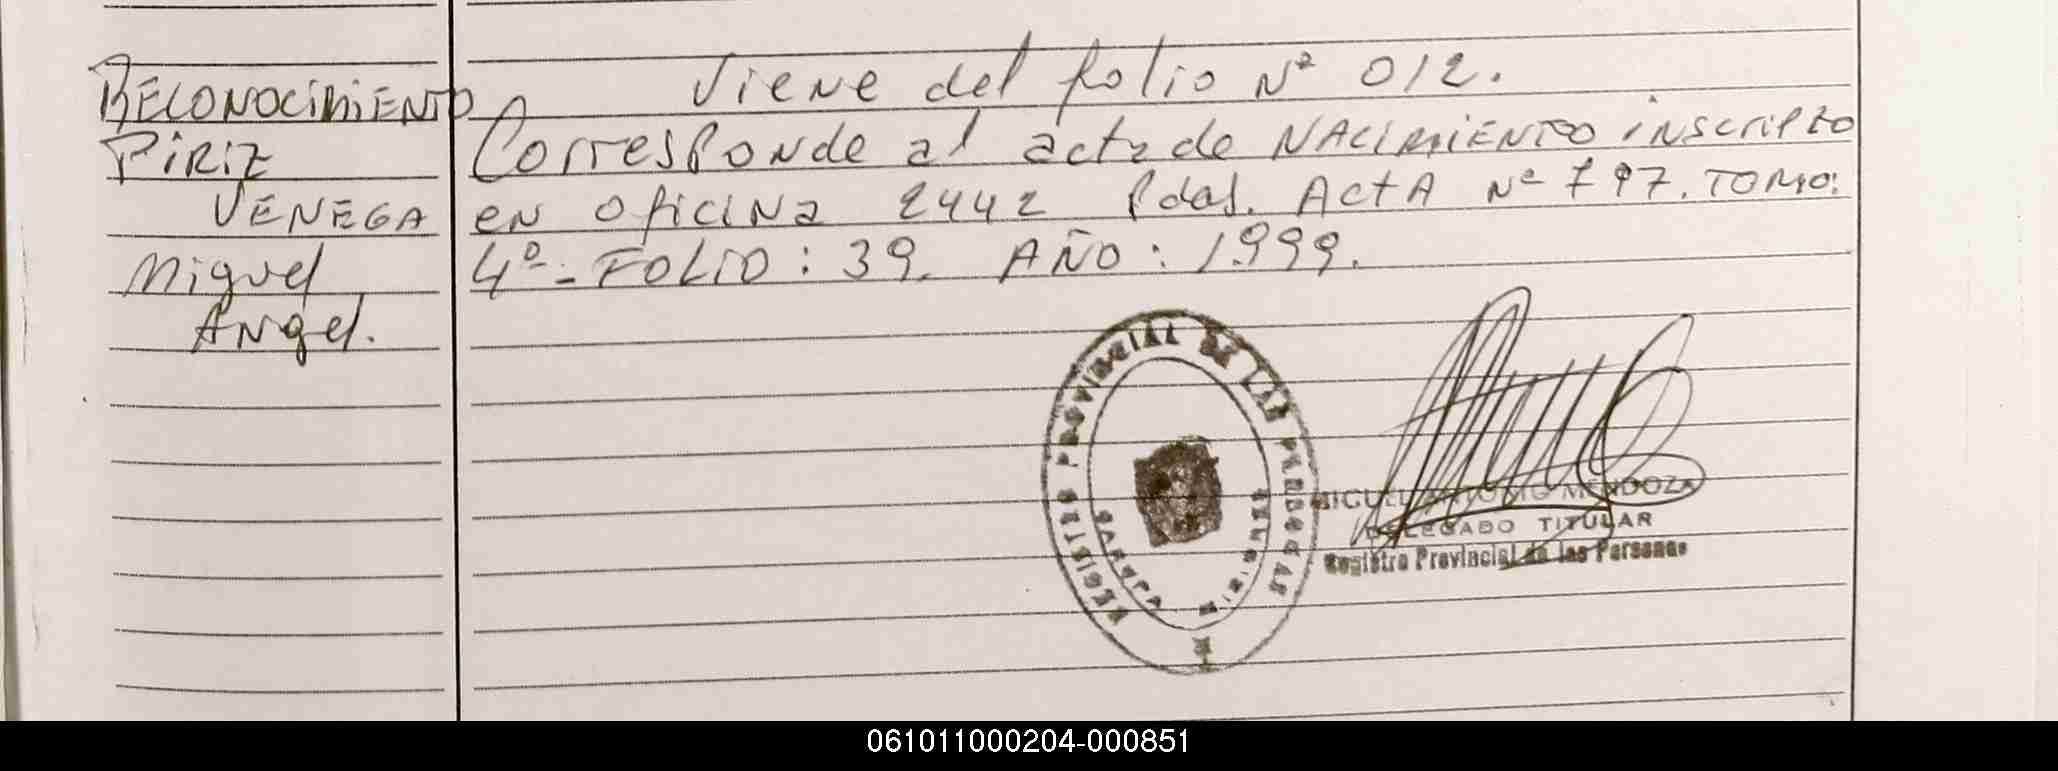 RECONOCIMIENTO
PIRIZ
VENEGA
Miguel
Angel.
Viene del folio Nº 012.
Corresponde al acta de NACIMIENTO inscripto
en oficina 2442 Pdas. ActA Nº 797. TOMO:
4º - FOLIO: 39. AÑO: 1999.
REGISTRO PROVINCIAL DE LAS PERSONAS
MIGUEL ANTONIO MENDOZA
DELEGADO TITULAR
Registro Provincial de las Personas
061011000204-000851